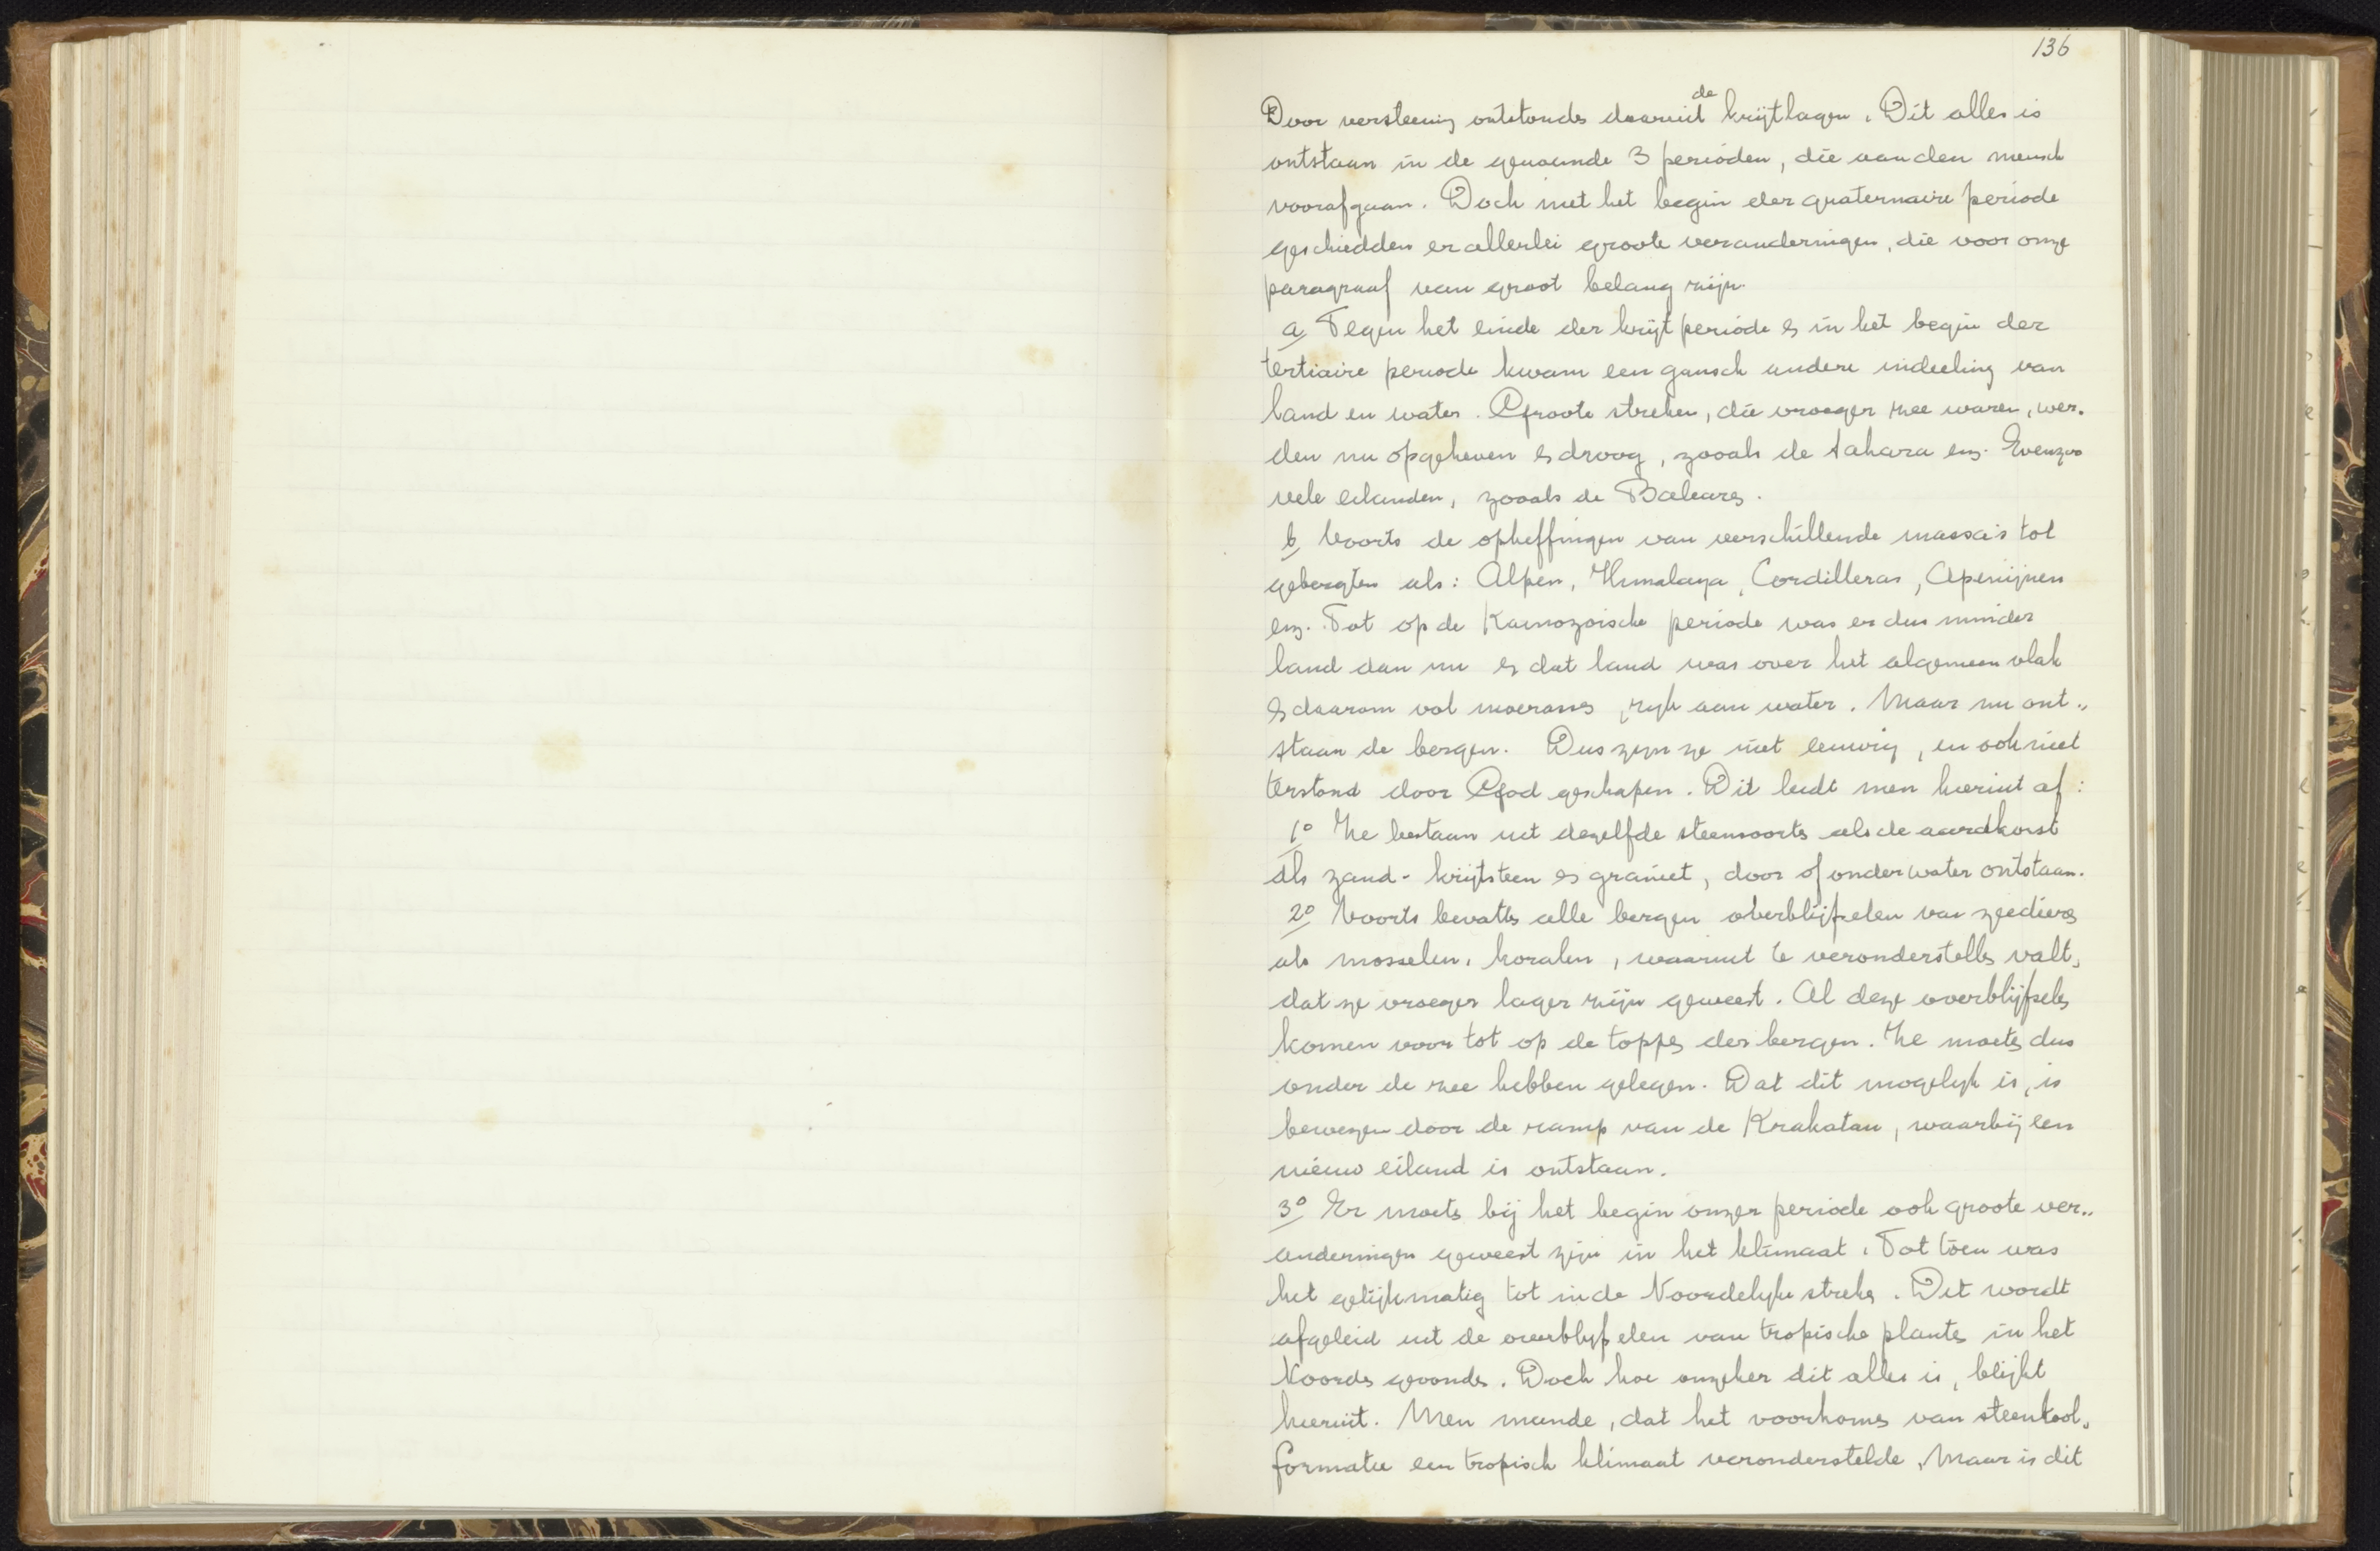 136
de
Door versteening ontstonden daaruit krijtlagen. Dit alles is
ontstaan in de genoemde 3 perioden, die aan den mensch
voorafgaan. Doch met het begin der quaternaire periode
geschiedden er allerlei groote veranderingen, die voor onze
paragraaf van groot belang zijn.
a, Tegen het einde der krijtperiode en in het begin der
tertiaire periode kwam een gansch andere indeeling van
land en water. Groote streken, die vroeger zee waren, wer-
den nu opgeheven en droog, zooals de Sahara enz. Evenzoo
vele eilanden, zooals de Balearen.
b, Voorts de opheffingen van verschillende massa's tot
gebergten als: Alpen, Himalaya, Cordilleras, Apenijnen
enz. Tot op de Kainozoische periode was er dus minder
land dan nu en dat land was over het algemeen vlak
en daarom vol moerassen, rijk aan water. Maar nu ont-
staan de bergen. Dus zijn ze niet eeuwig, en ook niet
terstond door God geschapen. Dit leidt men hieruit af:
1° Ze bestaan uit dezelfde steensoorten als de aardkorst
als zand- krijtsteen en graniet, door of onder water ontstaan.
2° Voorts bevatten alle bergen overblijfselen van zeedieren
als mosselen, koralen, waaruit te veronderstellen valt,
dat ze vroeger lager zijn geweest. Al deze overblijfselen
komen voor tot op de toppen der bergen. Ze moeten dus
onder de zee hebben gelegen. Dat dit mogelijk is, is
bewezen door de ramp van de Krakatau, waarbij een
nieuw eiland is ontstaan.
3° Er moeten bij het begin onzer periode ook groote ver-
anderingen geweest zijn in het klimaat. Tot toen was
het gelijkmatig tot in de Noordelijke streken. Dit wordt
afgeleid uit de overblijfselen van tropische planten in het
Noorden gevonden. Doch hoe onzeker dit alles is, blijkt
hieruit. Men meende, dat het voorkomen van steenkool-
formatie een tropisch klimaat veronderstelde. Maar is dit